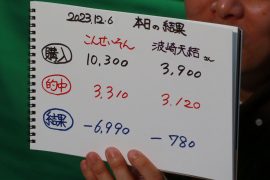 2023.12.6 本日の結果
こんせいそん 波崎大結さん
購入 10,300 3,900
的中 3,310 3,120
結果 -6,990 -780